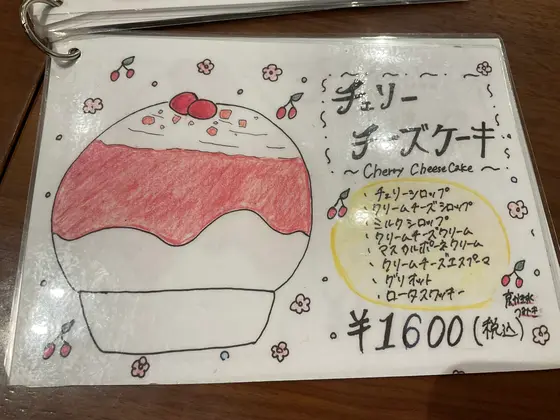 チェリー
チーズケーキ
～Cherry Cheese Cake～
・チェリーシロップ
・クリームチーズシロップ
・ミルクシロップ
・クリームチーズクリーム
・マスカルポーネクリーム
・クリームチーズエスプーマ
・グリオット
・ロータスクッキー
¥1600(税込)